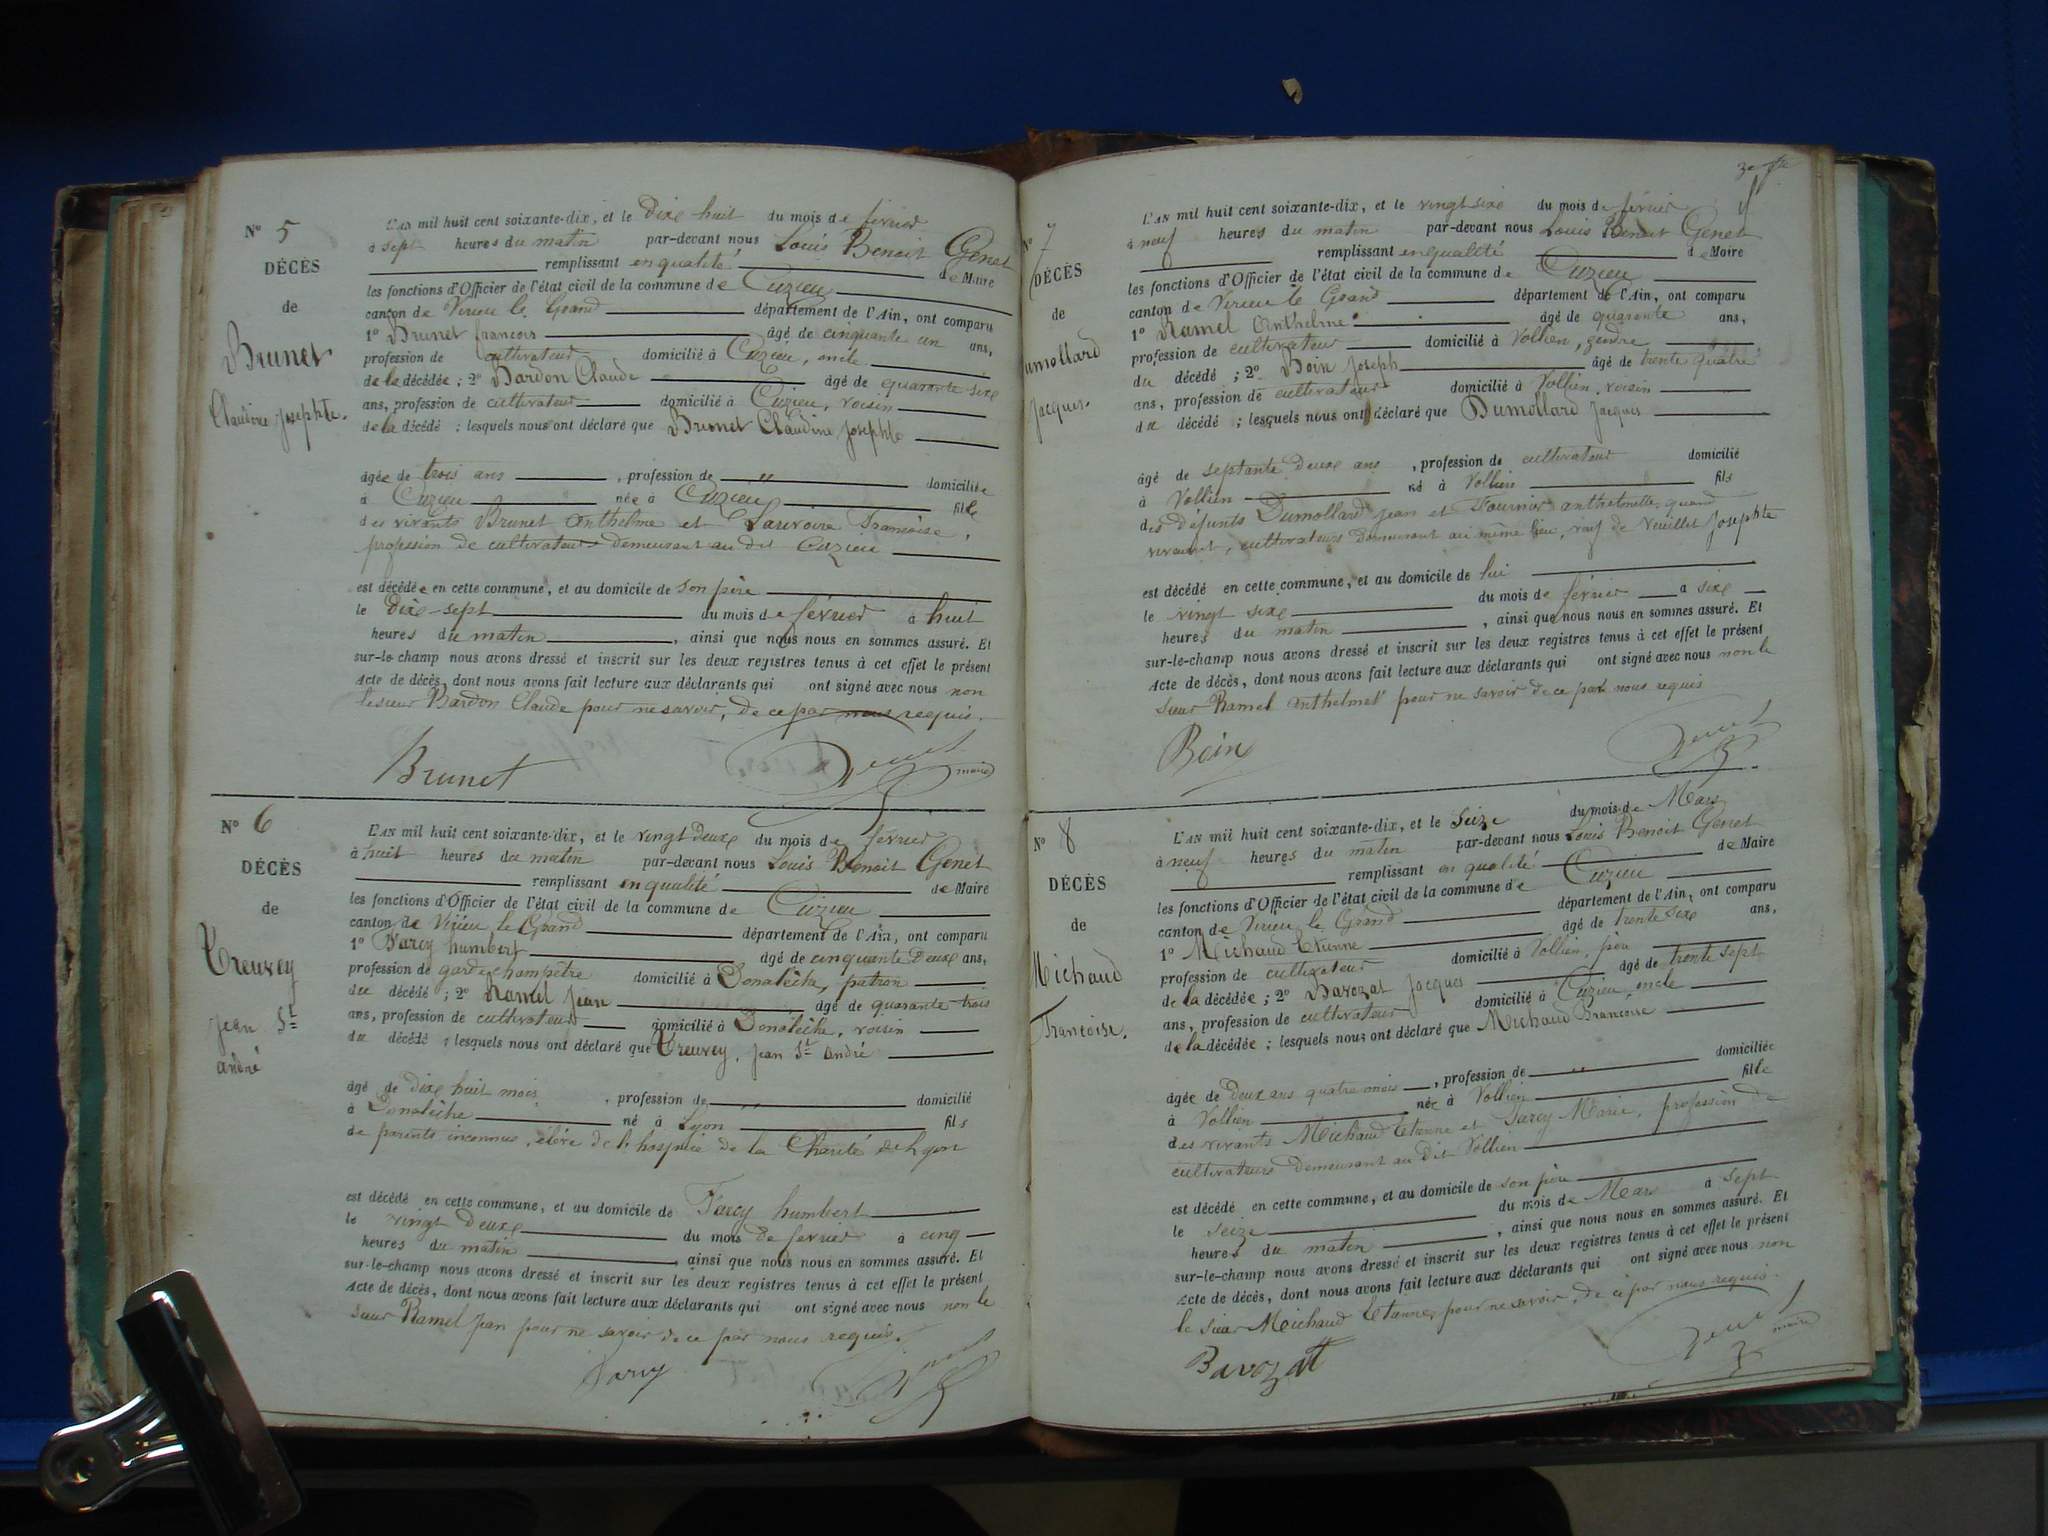 N° 5
DÉCÈS
de
Brunet
Claudine Josephte.
L'AN mil huit cent soixante-dix, et le dixe huit du mois de février
à sept heures du matin par-devant nous Louis Benoit Genet
remplissant en qualité de Maire
les fonctions d'Officier de l'état civil de la commune de Cuzieu
canton de Virieu le Grand département de l'Ain, ont comparu
1° Brunet francois âgé de cinquante un ans,
profession de cultivateur domicilié à Cuzieu, oncle
de la décédée ; 2° Bardon Claude âgé de quarante sixe
ans, profession de cultivateur domicilié à Cuzieu, voisin
de la décédé ; lesquels nous ont déclaré que Brunet Claudine Josephte
âgée de trois ans , profession de " domiciliée
à Cuzieu née à Cuzieu fille
des vivants Brunet Anthelme et Larivoire Francoise,
profession de cultivateurs demeurant au dit Cuzieu
est décédée en cette commune, et au domicile de son père
le dixe-sept du mois de février à huit
heures du matin , ainsi que nous nous en sommes assuré. Et
sur-le-champ nous avons dressé et inscrit sur les deux registres tenus à cet effet le présent
Acte de décès, dont nous avons fait lecture aux déclarants qui ont signé avec nous non
le sieur Bardon Claude pour ne savoir, de ce par nous requis.
Brunet Genet maire
N° 6
DÉCÈS
de
Treuvey
Jean St
André
L'AN mil huit cent soixante-dix, et le vingt deuxe du mois de février
à huit heures du matin par-devant nous Louis Benoit Genet
remplissant en qualité de Maire
les fonctions d'Officier de l'état civil de la commune de Cuzieu
canton de Virieu le Grand département de l'Ain, ont comparu
1° Farcy humbert âgé de cinquante deuxe ans,
profession de garde champêtre domicilié à Donalèche, patron
du décédé ; 2° Ramel Jean âgé de quarante trois
ans, profession de cultivateur domicilié à Donalèche, voisin
du décédé ; lesquels nous ont déclaré que Treuvey, Jean St André
âgé de dixe huit mois , profession de " domicilié
à Donalèche né à Lyon fils
de parents inconnus, élève de l'hospice de la Charité de Lyon
est décédé en cette commune, et au domicile de Farcy humbert
le vingt deuxe du mois de février à cinq
heures du matin , ainsi que nous nous en sommes assuré. Et
sur-le-champ nous avons dressé et inscrit sur les deux registres tenus à cet effet le présent
Acte de décès, dont nous avons fait lecture aux déclarants qui ont signé avec nous non le
sieur Ramel Jean pour ne savoir de ce par nous requis.
Farcy Genet
N° 7
DÉCÈS
de
umollard
Jacques.
L'AN mil huit cent soixante-dix, et le vingt sixe du mois de février
à neuf heures du matin par-devant nous Louis Benoit Genet
remplissant en qualité de Maire
les fonctions d'Officier de l'état civil de la commune de Cuzieu
canton de Virieu le Grand département de l'Ain, ont comparu
1° Ramel Anthelme âgé de quarante ans,
profession de cultivateur domicilié à Vollien, gendre
du décédé ; 2° Boin Joseph âgé de trente quatre
ans, profession de cultivateur domicilié à Vollien, voisin
du décédé ; lesquels nous ont déclaré que Dumollard Jacques
âgé de septante deuxe ans , profession de cultivateur domicilié
à Vollien né à Vollien fils
des défunts Dumollard Jean et Fournier anthelmette, quand
vivaient, cultivateurs demeurant au même lieu, veuf de Veuillet Josephte
est décédé en cette commune, et au domicile de lui
le vingt sixe du mois de février à sixe
heures du matin , ainsi que nous nous en sommes assuré. Et
sur-le-champ nous avons dressé et inscrit sur les deux registres tenus à cet effet le présent
Acte de décès, dont nous avons fait lecture aux déclarants qui ont signé avec nous non le
sieur Ramel Anthelme pour ne savoir de ce par nous requis
Boin Genet
N° 8
DÉCÈS
de
Michaud
Francoise.
L'AN mil huit cent soixante-dix, et le Seize du mois de Mars
à neuf heures du matin par-devant nous Louis Benoit Genet
remplissant en qualité de Maire
les fonctions d'Officier de l'état civil de la commune de Cuzieu
canton de Virieu le Grand département de l'Ain, ont comparu
1° Michaud Etienne âgé de trente sixe ans,
profession de cultivateur domicilié à Vollien, père
de la décédée ; 2° Bavozat Jacques âgé de trente sept
ans, profession de cultivateur domicilié à Cuzieu, oncle
de la décédée ; lesquels nous ont déclaré que Michaud Francoise
âgée de deux ans quatre mois , profession de " domiciliée
à Vollien née à Vollien fille
des vivants Michaud Etienne et Farcy Marie, profession de
cultivateurs demeurant au dit Vollien
est décédé en cette commune, et au domicile de son père
le seize du mois de Mars à sept
heures du matin , ainsi que nous nous en sommes assuré. Et
sur-le-champ nous avons dressé et inscrit sur les deux registres tenus à cet effet le présent
Acte de décès, dont nous avons fait lecture aux déclarants qui ont signé avec nous non
le sieur Michaud Etienne, pour ne savoir, de ce par nous requis.
Bavozat Genet maire